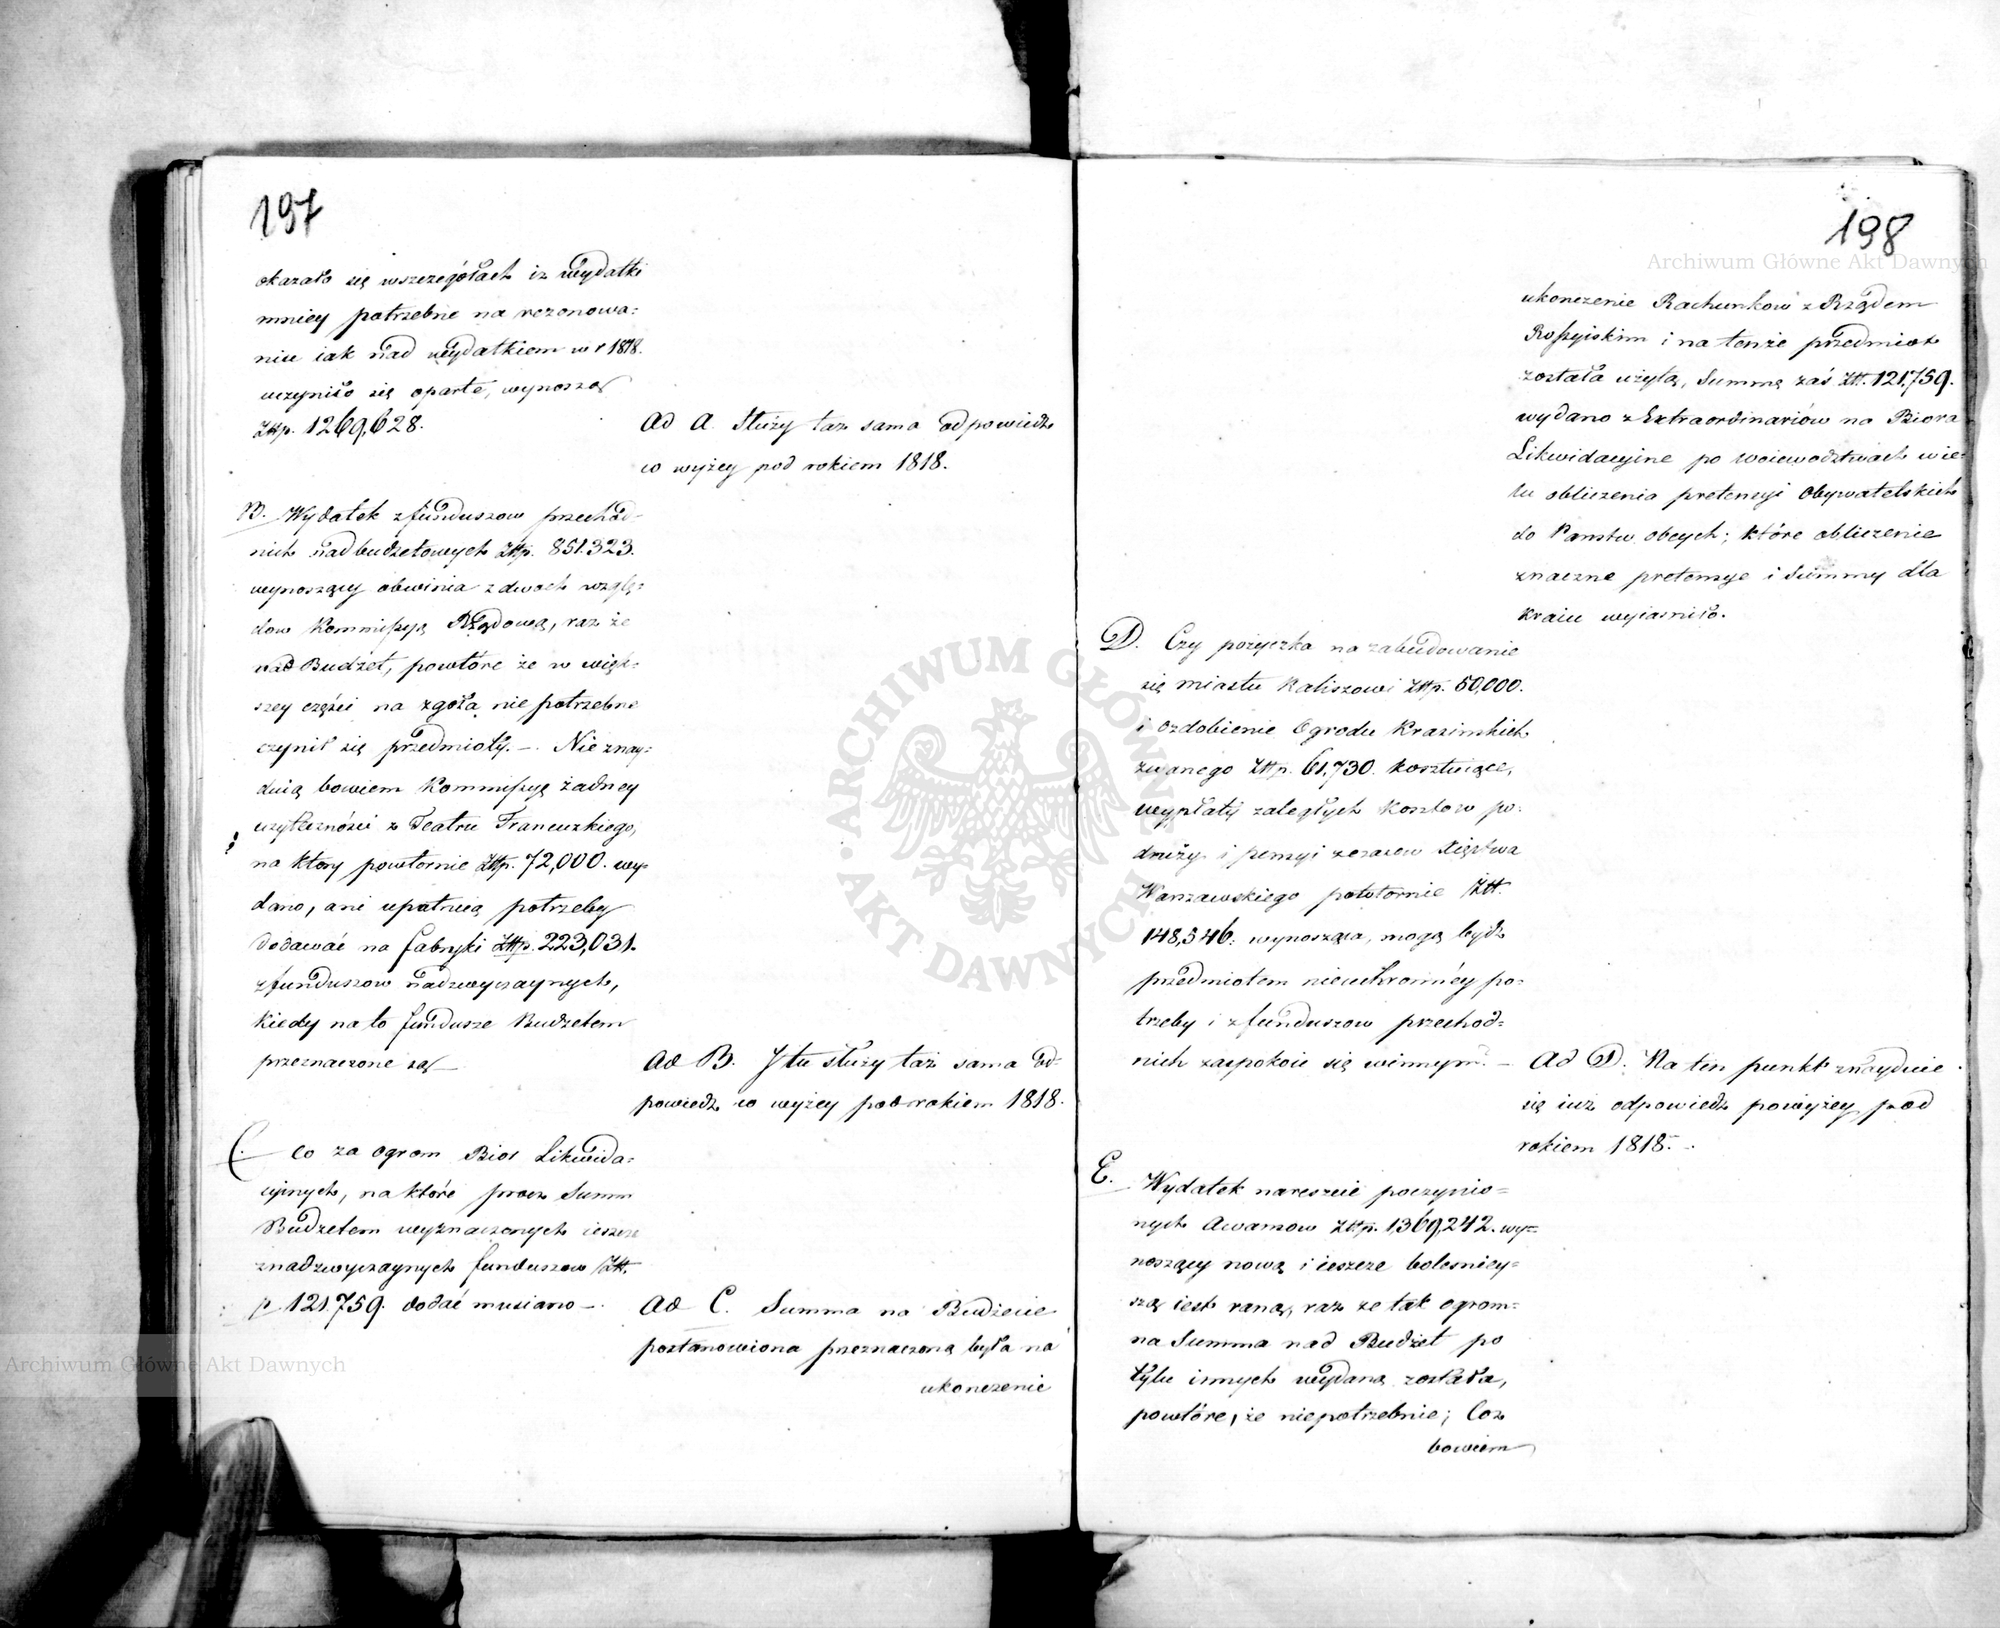 197
okazało się wszczegółach iz wydatki
mniey potrzebne na rozonowa:
niu iak nad wydatkiem w r 1818.
uczyniło się oparte, wynoszą
Złłp. 1269,628.
Ad A. Służy taż sama odpowiedz
co wyżey pod rokiem 1818.
B. Wydatek z funduszow przechod-
nich nadbudżetowych Złłp. 851.323.
wynoszący obwinia z dwoch wzglę:
dow Kommissyą Rządową, raz że
nad Budżet, powtóre że w więk:
szey części na zgoła nie potrzebne
czynił się przedmioty. — Nie znay:
duią bowiem Kommissyę żadney
użyteczności z Teatru Francuzkiego,
na który powtornie Złłp. 72,000. wy-
dano, ani upatruią potrzeby
dodawać na fabryki Złłp. 223,031.
z funduszow nadzwyczaynych,
kiedy na to fundusze Budżetem
przeznaczone są —
Ad B. I tu służy taż sama od-
powiedz co wyżey pod rokiem 1818.
C. Co za ogrom Biór Likwida:
cyinych, na które procz Summ
Budżetem wyznaczonych ieszcze
z nadzwyczaynych funduszow Złł.
p. 121.759. dodać musiano —.
Ad C. Summa na Budżecie
postanowiona przeznaczoną była na
ukonczenie
198
ukonczenie Rachunków z Rządem
Rossyiskim i na tenże przedmiot
została użytą, Summą zaś Złł. 121.759.
wydano z Extraordinariów na Biora
Likwidacyine po Woiewodztwach w ce-
lu obliczenia pretensyi Obywatelskich
do Panstw obcych; które obliczenie
znaczne pretensye i Summy dla
Kraiu wyiasniło.
D. Czy pożyczka na zabudowanie
się miastu Kaliszowi Złłp. 50,000.
i ozdobienie Ogrodu Krasinskich
zwanego Złłp. 61,730. kosztuiące,
wypłaty zaległych kosztow po-
druży i pensyi zczasow Xięstwa
Warszawskiego powtornie Złł.
148,346. wynosząca, mogą bydz
przedmiotem nieuchronnéy po-
trzeby i z funduszow przechod-
nich zaspokoic się winnym? —
Ad D. Na ten punkt znayduie
się iuż odpowiedz powyżey pod
rokiem 1818. —
E. Wydatek nareszcie poczynio-
nych Awansow Złłp. 1,369,242. wy-
noszący nową i ieszcze bolesniey-
szą iest raną, raz ze tak ogrom-
na Summa nad Budżet po
tylu innych wydaną została,
powtóre, że niepotrzebnie; Coż
bowiem
Archiwum Główne Akt Dawnych
Archiwum Główne Akt Dawnych
ARCHIWUM GŁÓWNE AKT DAWNYCH